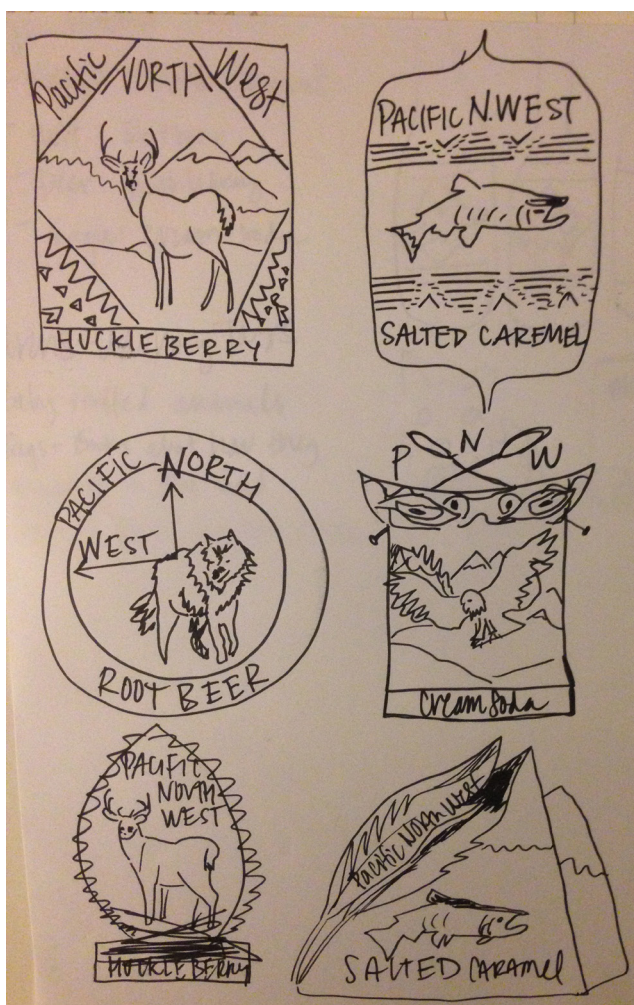 Pacific NORTH West
HUCKLEBERRY
PACIFIC N.WEST
SALTED CAREMEL
PACIFIC NORTH
WEST
ROOT BEER
P N W
Cream Soda
PACIFIC
NORTH
WEST
HUCKLEBERRY
Pacific North West
SALTED CARAMEl